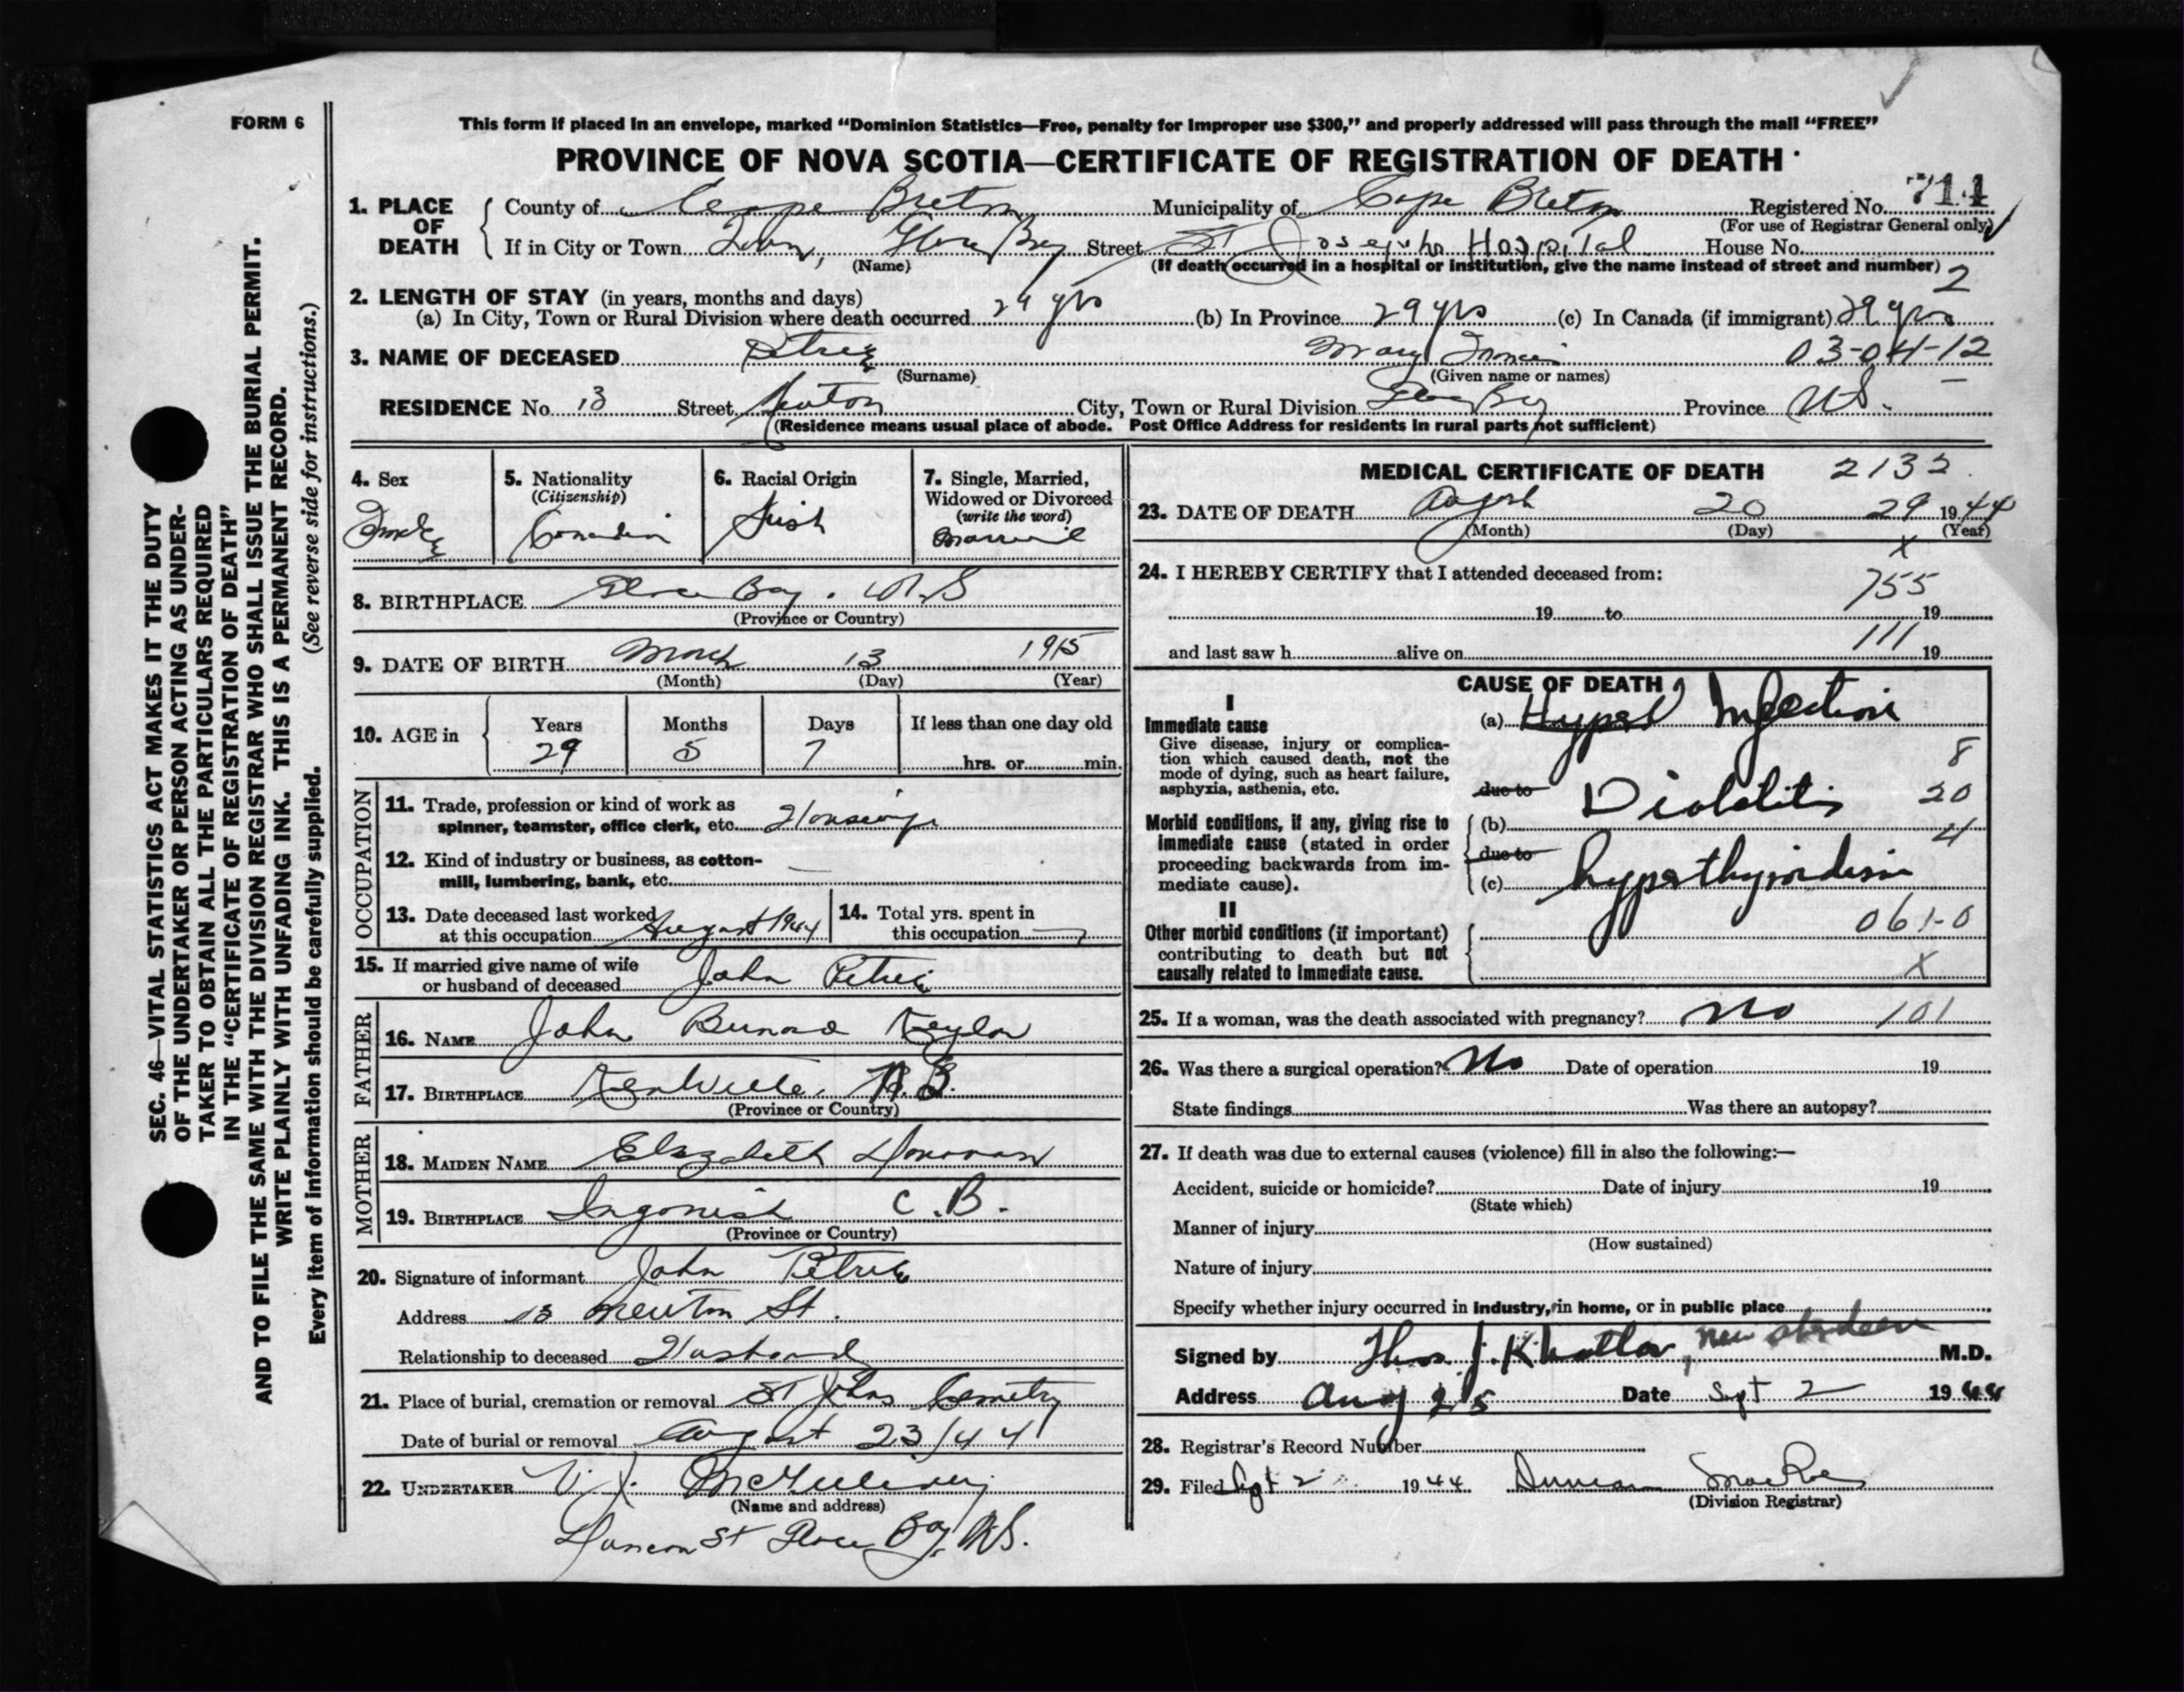 FORM 6
This form if placed in an envelope, marked “Dominion Statistics—Free, penalty for improper use $300,” and properly addressed will pass through the mail “FREE”
PROVINCE OF NOVA SCOTIA—CERTIFICATE OF REGISTRATION OF DEATH
1. PLACE OF DEATH
County of Cape Breton Municipality of Cape Breton Registered No. 711
(For use of Registrar General only)
If in City or Town Town, Glace Bay Street St Josephs Hospital House No.
(Name) (If death occurred in a hospital or institution, give the name instead of street and number) 2
2. LENGTH OF STAY (in years, months and days)
(a) In City, Town or Rural Division where death occurred 29 yrs (b) In Province 29 yrs (c) In Canada (if immigrant) 29 yrs
3. NAME OF DECEASED Petrie Mary 03-04-12
(Surname) (Given name or names)
RESIDENCE No. 13 Street City, Town or Rural Division Glace Bay Province N.S.
(Residence means usual place of abode. Post Office Address for residents in rural parts not sufficient)
4. Sex
Female
5. Nationality
(Citizenship)
Canadian
6. Racial Origin
Irish
7. Single, Married,
Widowed or Divorced
(write the word)
Married
8. BIRTHPLACE Glace Bay. N.S
(Province or Country)
9. DATE OF BIRTH March 13 1915
(Month) (Day) (Year)
10. AGE in
Years Months Days If less than one day old
29 5 7 hrs. or min.
OCCUPATION
11. Trade, profession or kind of work as
spinner, teamster, office clerk, etc. Housewife
12. Kind of industry or business, as cotton-
mill, lumbering, bank, etc. —
13. Date deceased last worked
at this occupation August 1944
14. Total yrs. spent in
this occupation
15. If married give name of wife
or husband of deceased John Petrie
FATHER
16. NAME John Bernard
17. BIRTHPLACE N.B.
(Province or Country)
MOTHER
18. MAIDEN NAME Elizabeth Donovan
19. BIRTHPLACE Ingonish C.B.
(Province or Country)
20. Signature of informant John Petrie
Address 13 Newton St.
Relationship to deceased Husband
21. Place of burial, cremation or removal St Johns Cemetry
Date of burial or removal August 23/44
22. UNDERTAKER V. J.
(Name and address)
St Glace Bay, N.S.
MEDICAL CERTIFICATE OF DEATH 2132
23. DATE OF DEATH August 20 29 1944
(Month) (Day) (Year)
x
24. I HEREBY CERTIFY that I attended deceased from:
755
19 to 19
111
and last saw h alive on 19
CAUSE OF DEATH
I
Immediate cause
Give disease, injury or complica-
tion which caused death, not the
mode of dying, such as heart failure,
asphyxia, asthenia, etc.
(a) Hyper Infection
8
due to Diabetitis 20
Morbid conditions, if any, giving rise to
immediate cause (stated in order
proceeding backwards from im-
mediate cause).
(b) 4
due to
(c) hyperthyroidism
II
Other morbid conditions (if important)
contributing to death but not
causally related to immediate cause.
061-0
x
25. If a woman, was the death associated with pregnancy? No 101
26. Was there a surgical operation? No Date of operation 19
State findings Was there an autopsy?
27. If death was due to external causes (violence) fill in also the following:—
Accident, suicide or homicide? Date of injury 19
(State which)
Manner of injury
(How sustained)
Nature of injury
Specify whether injury occurred in industry, in home, or in public place
Signed by Thos J. New Aberdeen M.D.
Address Aug 25 Date Sept 2 1944
28. Registrar's Record Number
29. Filed Sept 2 1944 Duncan MacRae
(Division Registrar)
SEC. 46—VITAL STATISTICS ACT MAKES IT THE DUTY
OF THE UNDERTAKER OR PERSON ACTING AS UNDER-
TAKER TO OBTAIN ALL THE PARTICULARS REQUIRED
IN THE “CERTIFICATE OF REGISTRATION OF DEATH”
AND TO FILE THE SAME WITH THE DIVISION REGISTRAR WHO SHALL ISSUE THE BURIAL PERMIT.
WRITE PLAINLY WITH UNFADING INK. THIS IS A PERMANENT RECORD.
Every item of information should be carefully supplied. (See reverse side for instructions.)